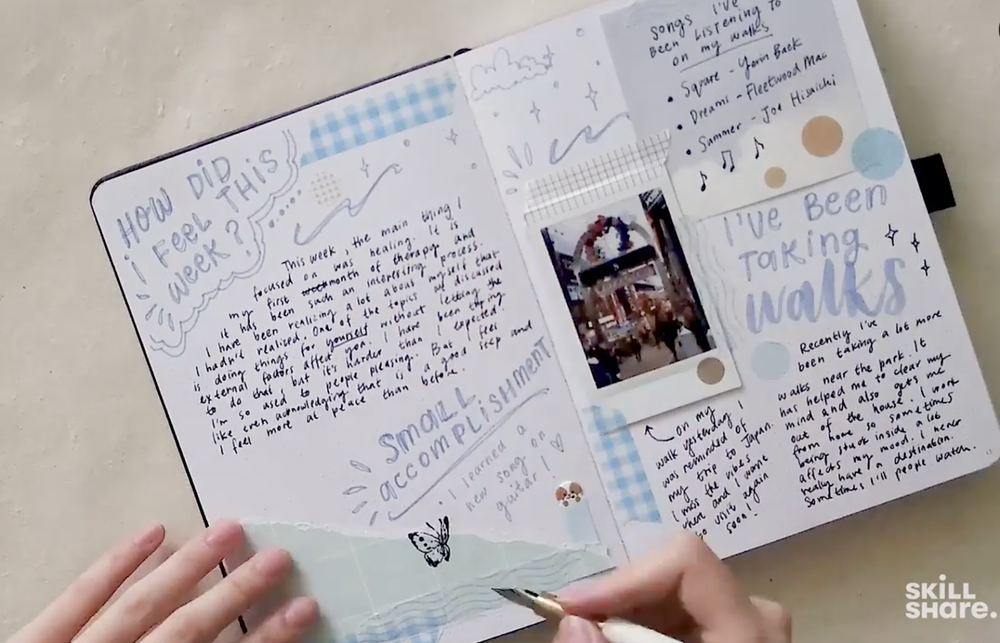 HOW DID
i FEEL THIS
WEEK?
This week, the main thing I
focused on was healing. It is
my first month of therapy and
it has been such an interesting process.
I have been realizing a lot about myself that
I hadn't realised. One of the topics we discussed
is doing things for yourself without letting the
external factors affect you. I have been trying
to do that but it's harder than I expected.
I'm so used to people pleasing. But I feel
like even acknowledging that is a good step and
I feel more at peace than before.
Small
accomplishment
I learned a
new song on
guitar!
Songs I've
Been Listening to
on my walks
• Square - Yerin Baek
• Dreams - Fleetwood Mac
• Summer - Joe Hisaichi
I've Been
Taking
walks
Recently I've
been taking a lot more
walks near the park. It
has helped me to clear my
mind and also gets me
out of the house. I work
from home so sometimes
being stuck inside a lot
affects my mood. I never
really have a destination.
Sometimes I'll people watch.
on my
walk yesterday I
was reminded of
my trip to Japan.
I miss the vibes
there and I wanna
go visit again
soon!
SKILL
SHARE.